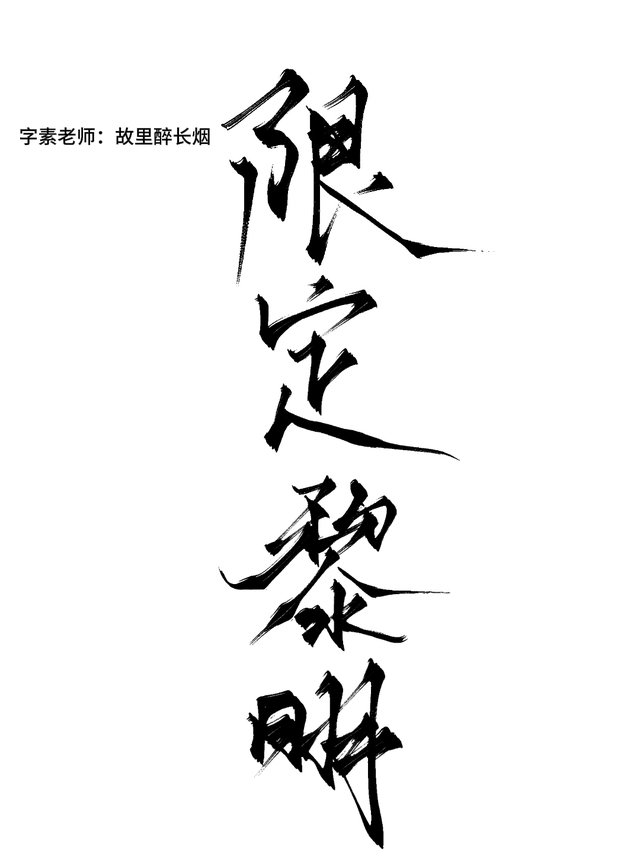 字素老师：故里醉长烟
限定黎明